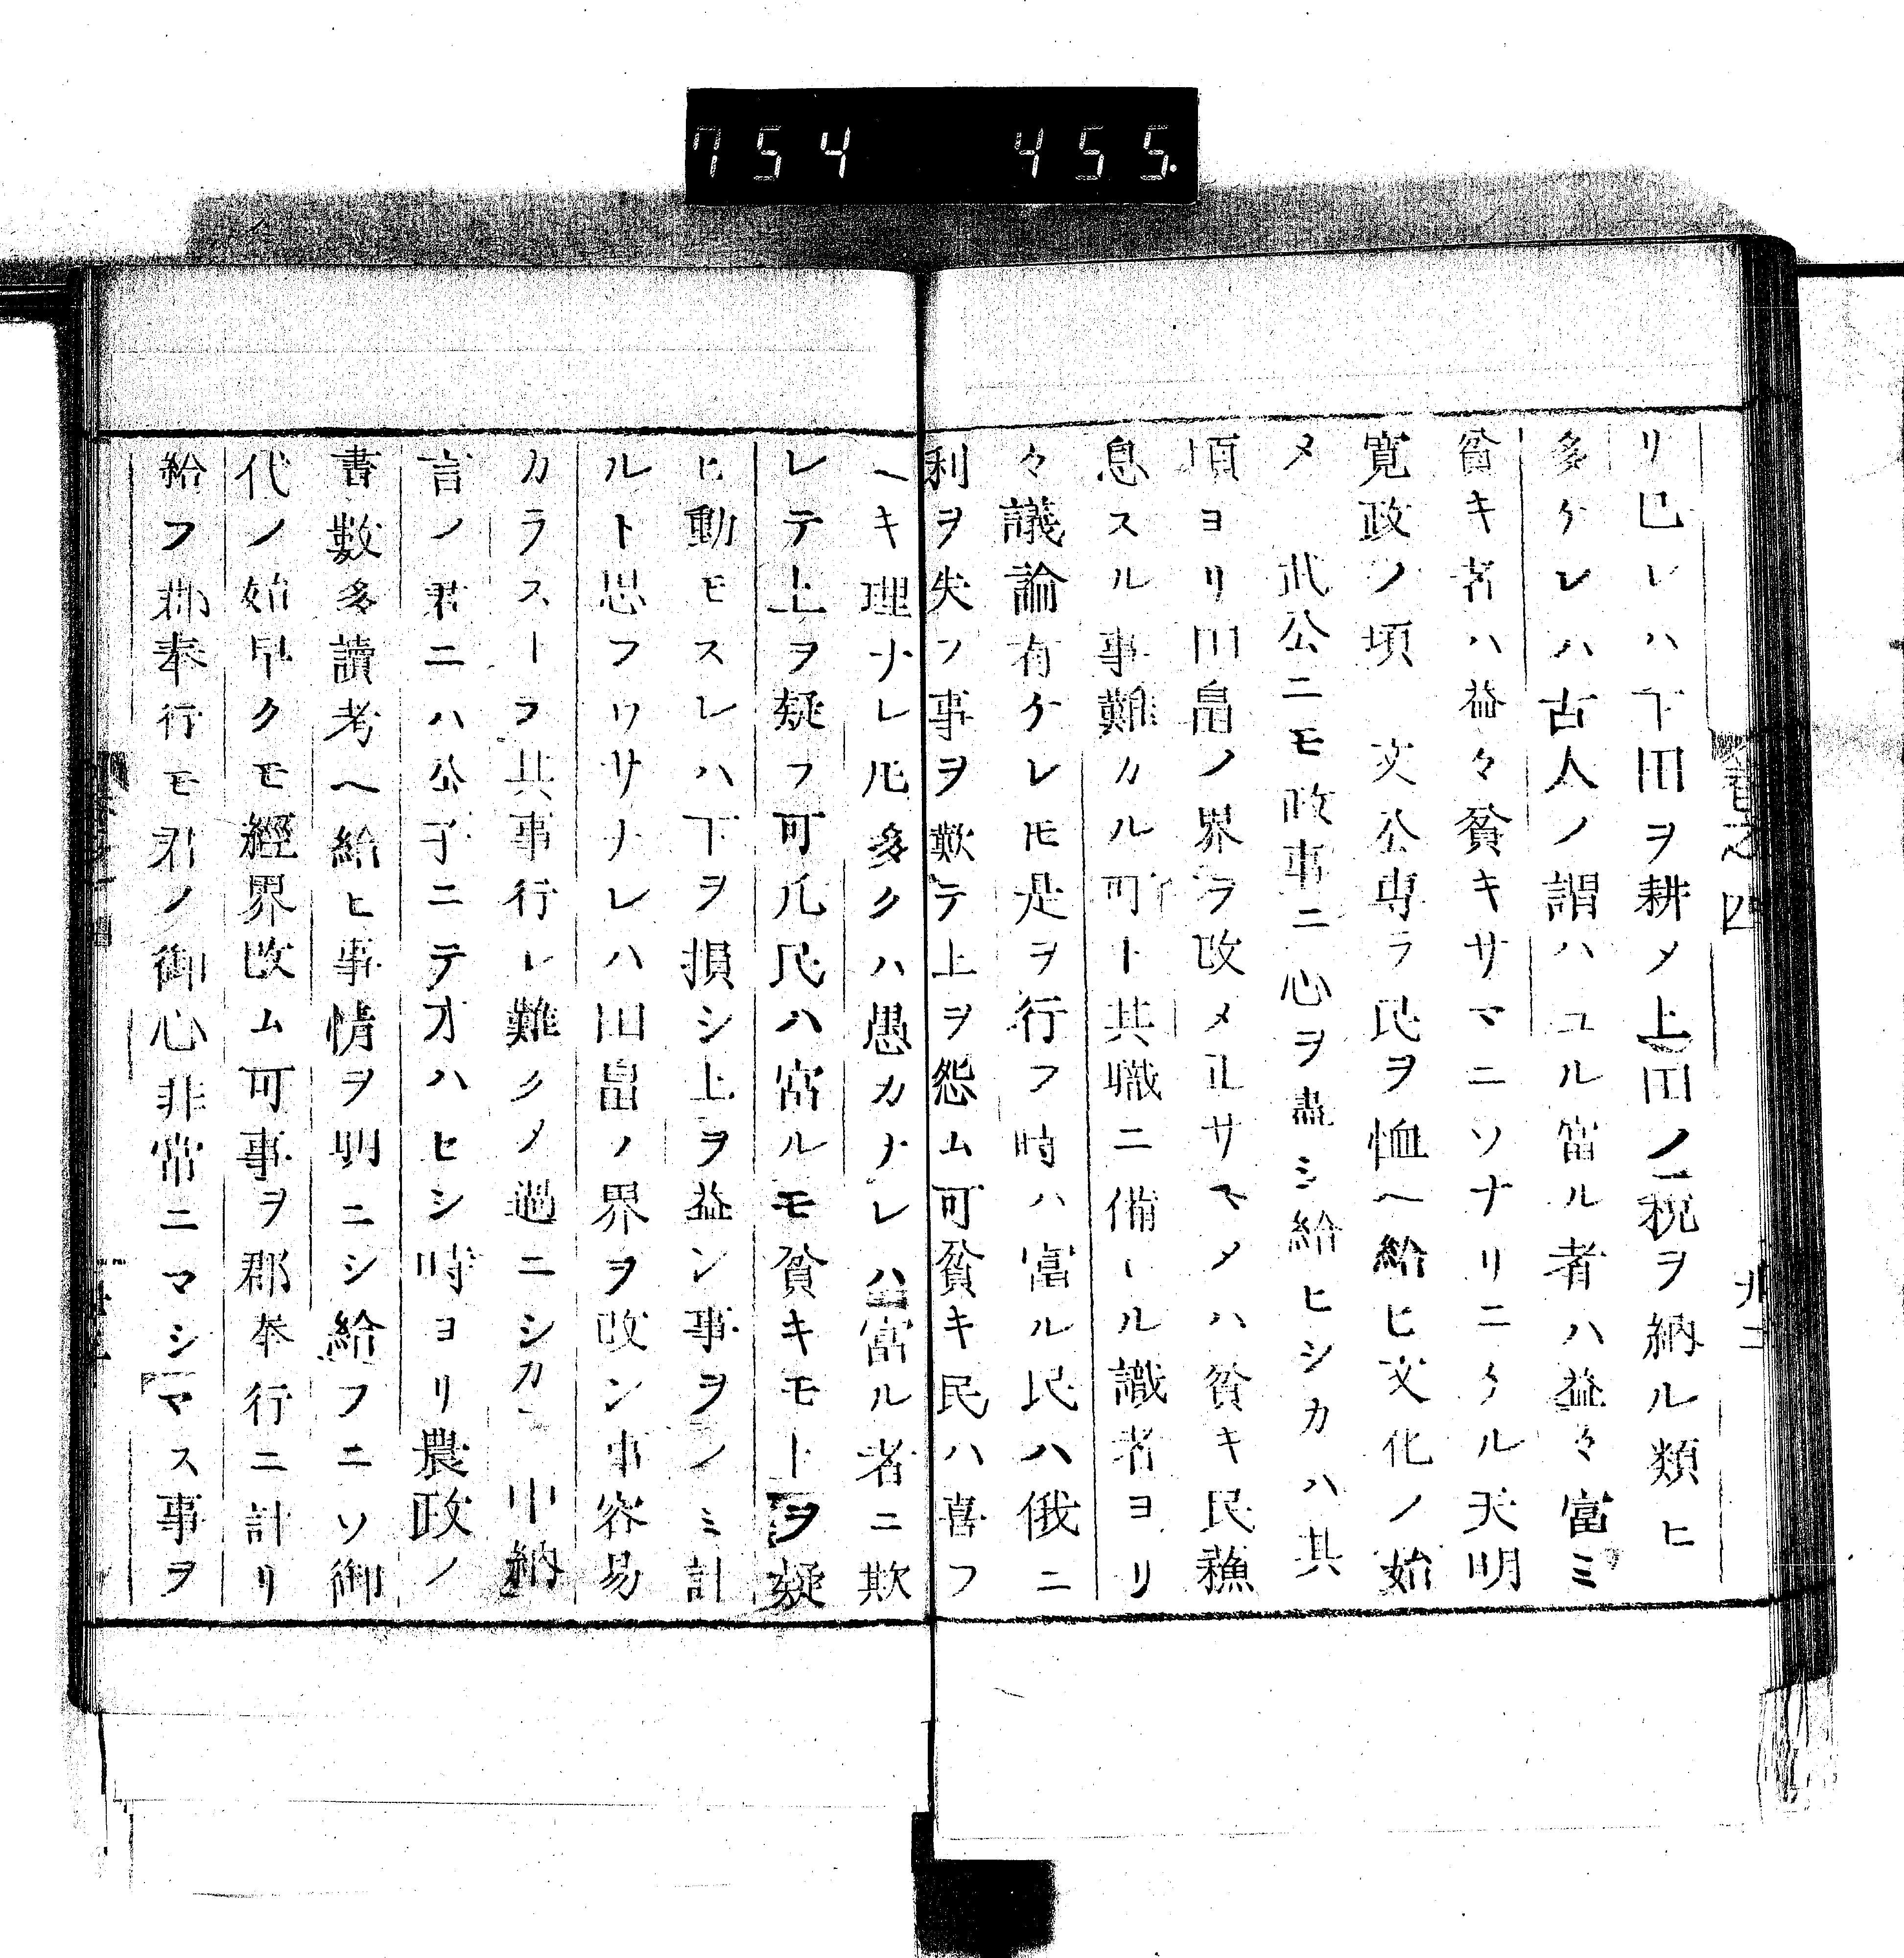 754 455
卷之四
リ已レハ下田ヲ耕メ上田ノ税ヲ納ル類ヒ
多ケレハ古人ノ謂ハユル富ル者ハ益々富ミ
貧キ者ハ益々貧キサマニソナリニケル天明
寛政ノ頃 文公専ラ民ヲ恤ヘ給ヒ文化ノ始
メ 武公ニモ政事ニ心ヲ盡シ給ヒシカハ其
頃ヨリ田畠ノ界ヲ改メ正サスメハ貧キ民蘓
息スル事難カル可ト其職ニ備ハル識者ヨリ
々議論有ケレ𪜈是ヲ行フ時ハ富ル民ハ俄ニ
利ヲ失フ事ヲ歎テ上ヲ怨ム可貧キ民ハ喜フ
ヘキ理ナレ𪜈多クハ愚カナレハ富ル者ニ欺
レテ上ヲ疑フ可凡民ハ富ルモ貧キモ上ヲ疑
ヒ動モスレハ下ヲ損シ上ヲ益ン事ヲノミ計
ルト思フワサナレハ田畠ノ界ヲ改ン事容易
カラスーフ其事行レ難クメ過ニシカ 中納
言ノ君ニハ公子ニテオハセシ時ヨリ農政ノ
書數多讀考ヘ給ヒ事情ヲ明ニシ給フニソ御
代ノ始早クモ經界改ム可事ヲ郡奉行ニ計リ
給フ郡奉行モ君ノ御心非常ニマシマス事ヲ